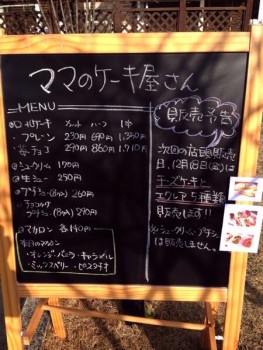 ママのケーキ屋さん
MENU
◎ロールケーキ カット ハーフ 1本
・プレーン 230円 690円 1,350円
290円 860円 1,710円
◎シュークリーム 170円
◎生シュー 250円
◎プチシュー(8コ入) 260円
プチシュー(8コ入) 290円
◎マカロン 各140円
本日のマカロン
・オレンジ・バニラ・キャラメル
・ミックスベリー・ピスタチオ
販売予告
次回の店頭販売
日、12月18日(金)は
チーズケーキと
エクレア5種類
販売します!!
※シュークリーム・プチシュー
は販売しません。